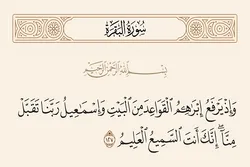 سُورَةُ الْبَقَرَةِ
بِسْمِ اللَّهِ الرَّحْمَٰنِ الرَّحِيمِ
وَإِذْ يَرْفَعُ إِبْرَٰهِـۧمُ ٱلْقَوَاعِدَ مِنَ ٱلْبَيْتِ وَإِسْمَٰعِيلُ رَبَّنَا تَقَبَّلْ
مِنَّآ ۖ إِنَّكَ أَنتَ ٱلسَّمِيعُ ٱلْعَلِيمُ ١٢٧